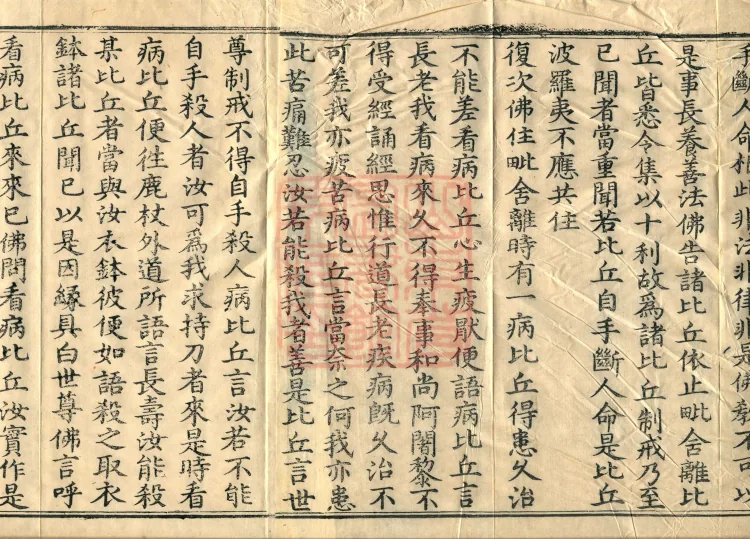 手斷人命
是事長養善法佛告諸比丘依止毗舍離比
丘皆悉令集以十利故爲諸比丘制戒乃至
已聞者當重聞若比丘自手斷人命是比丘
波羅夷不應共住
復次佛住毗舍離時有一病比丘得患久治
不能差看病比丘心生疲猒便語病比丘言
長老我看病來久不得奉事和尚阿闍黎不
得受經誦經思惟行道長老疾病旣久治不
可差我亦疲苦病比丘言當奈之何我亦患
此苦痛難忍汝若能殺我者善是比丘言世
尊制戒不得自手殺人病比丘言汝若不能
自手殺人者汝可爲我求持刀者來是時看
病比丘便徃鹿杖外道所語言長壽汝能殺
某比丘者當與汝衣鉢彼便如語殺之取衣
鉢諸比丘聞已以是因緣具白世尊佛言呼
看病比丘來來已佛問看病比丘汝實作是